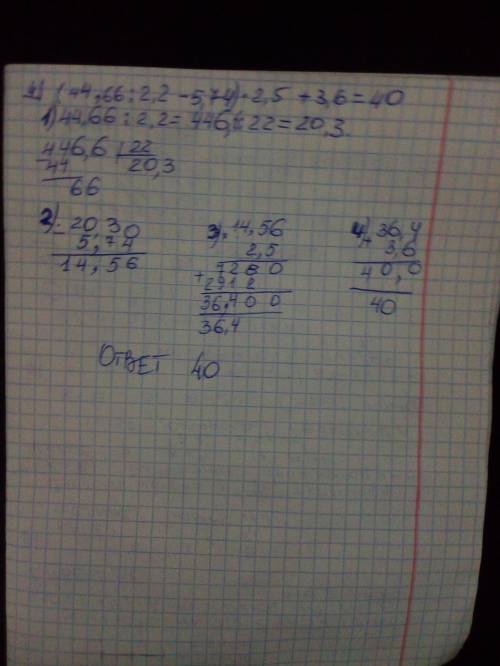 4) (44,66:2,2-5,74)·2,5+3,6=40
1) 44,66:2,2=446,6:22=20,3
-446,6 |22
44 20,3
66
2) -20,30
5,74
14,56
3) ·14,56
2,5
+7280
2912
36,400
36,4
4) +36,4
3,6
40,0
40
Ответ 40